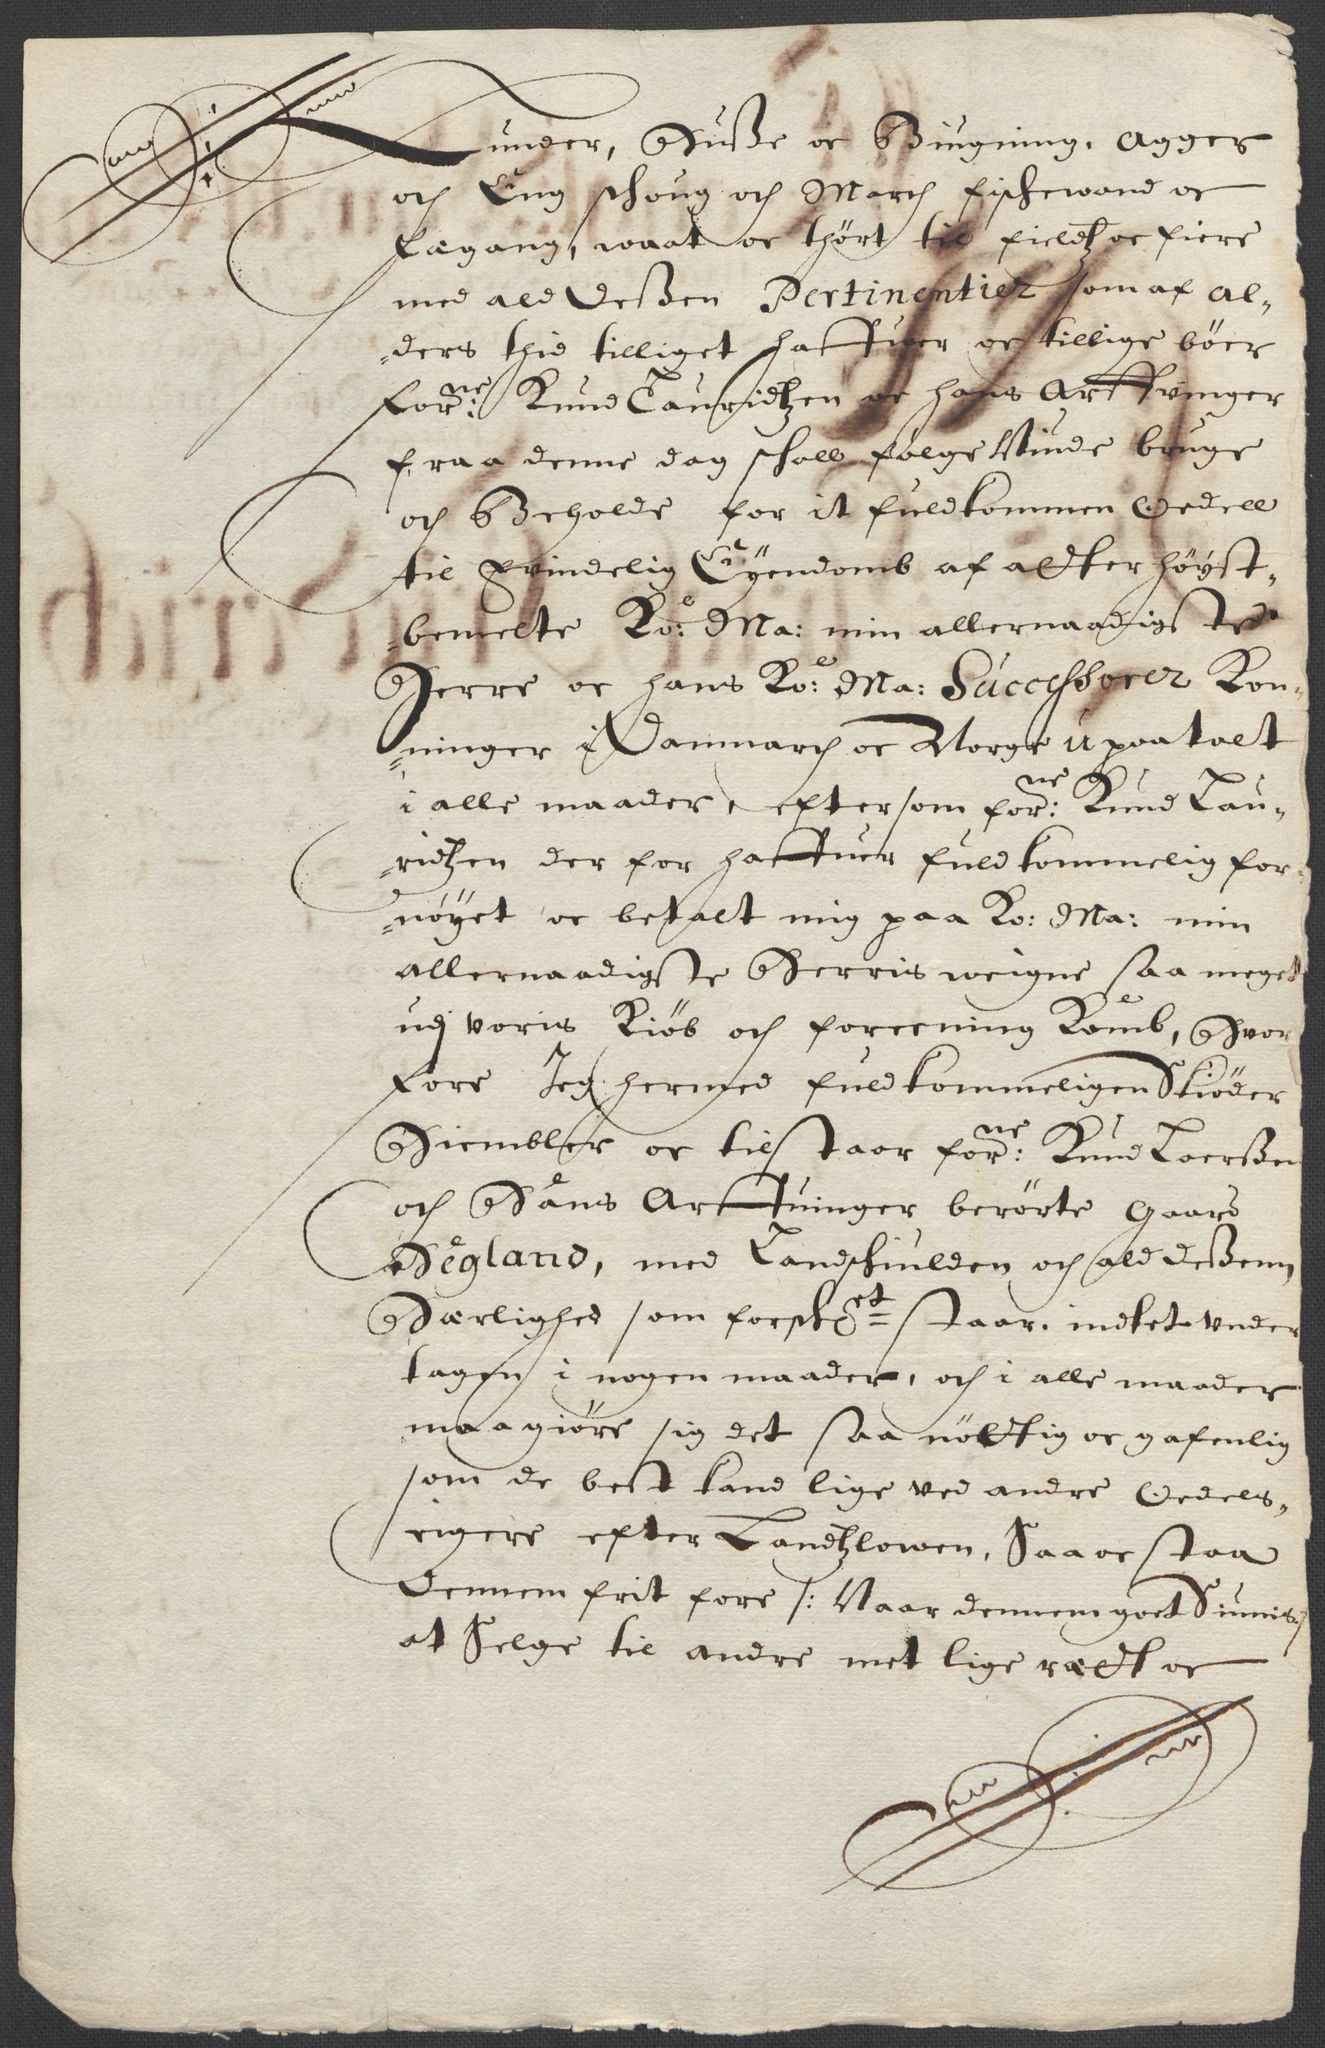 Lunder, Huuse oc Bŭugning, Agger
och Eng schoug och March fischewand oc
Fægang, waat oc thört til fieldtz oc fiere
med ald dessen Pertinentier som af al-
-ders thid tilliget haffuer oc tillige böer
forne: Knud Lauridtzen oc hans Arffvinger
fraa denne dag schall følge Niude bruge
och Beholde for it fuldkommen Oedell
til Evindelig Eÿendomb af aldter höÿst-
-bemelte Ko: Ma: min allernaadigste
Herre oc hans Ko: Ma: Successorer Kon-
-ninger i Danmarch oc Norge upaatalt
i alle maader, eftersom forne: Knud Lau-
-ridtzen der for haffuer fuldkommelig for-
-nöÿet oc betalt mig paa Ko: Ma: min
allernaadigste Herris weigne saa meget
udj voris Kiöb och foreening Komb, Hvor
fore Jeg hermed fuldkommeligen Skiöder
Hiembler oc tilstaar forne: Knud Loerssen
och Hans Arffuinger berörte gaard
Hegland, med Landschiulden och ald dessenn
Herlighed som forschret staar, indtet under
tagen i nogen maader, och i alle maader
maa giöre sig det saa nöttig oc gafenlig
som de best kand lige ved andre Oedels-
eigere efter Landtzlowen, Saa oc staa
dennem frit fore /: Naar dennem goet Siunis :/
at Selge til andre met lige rædt oc